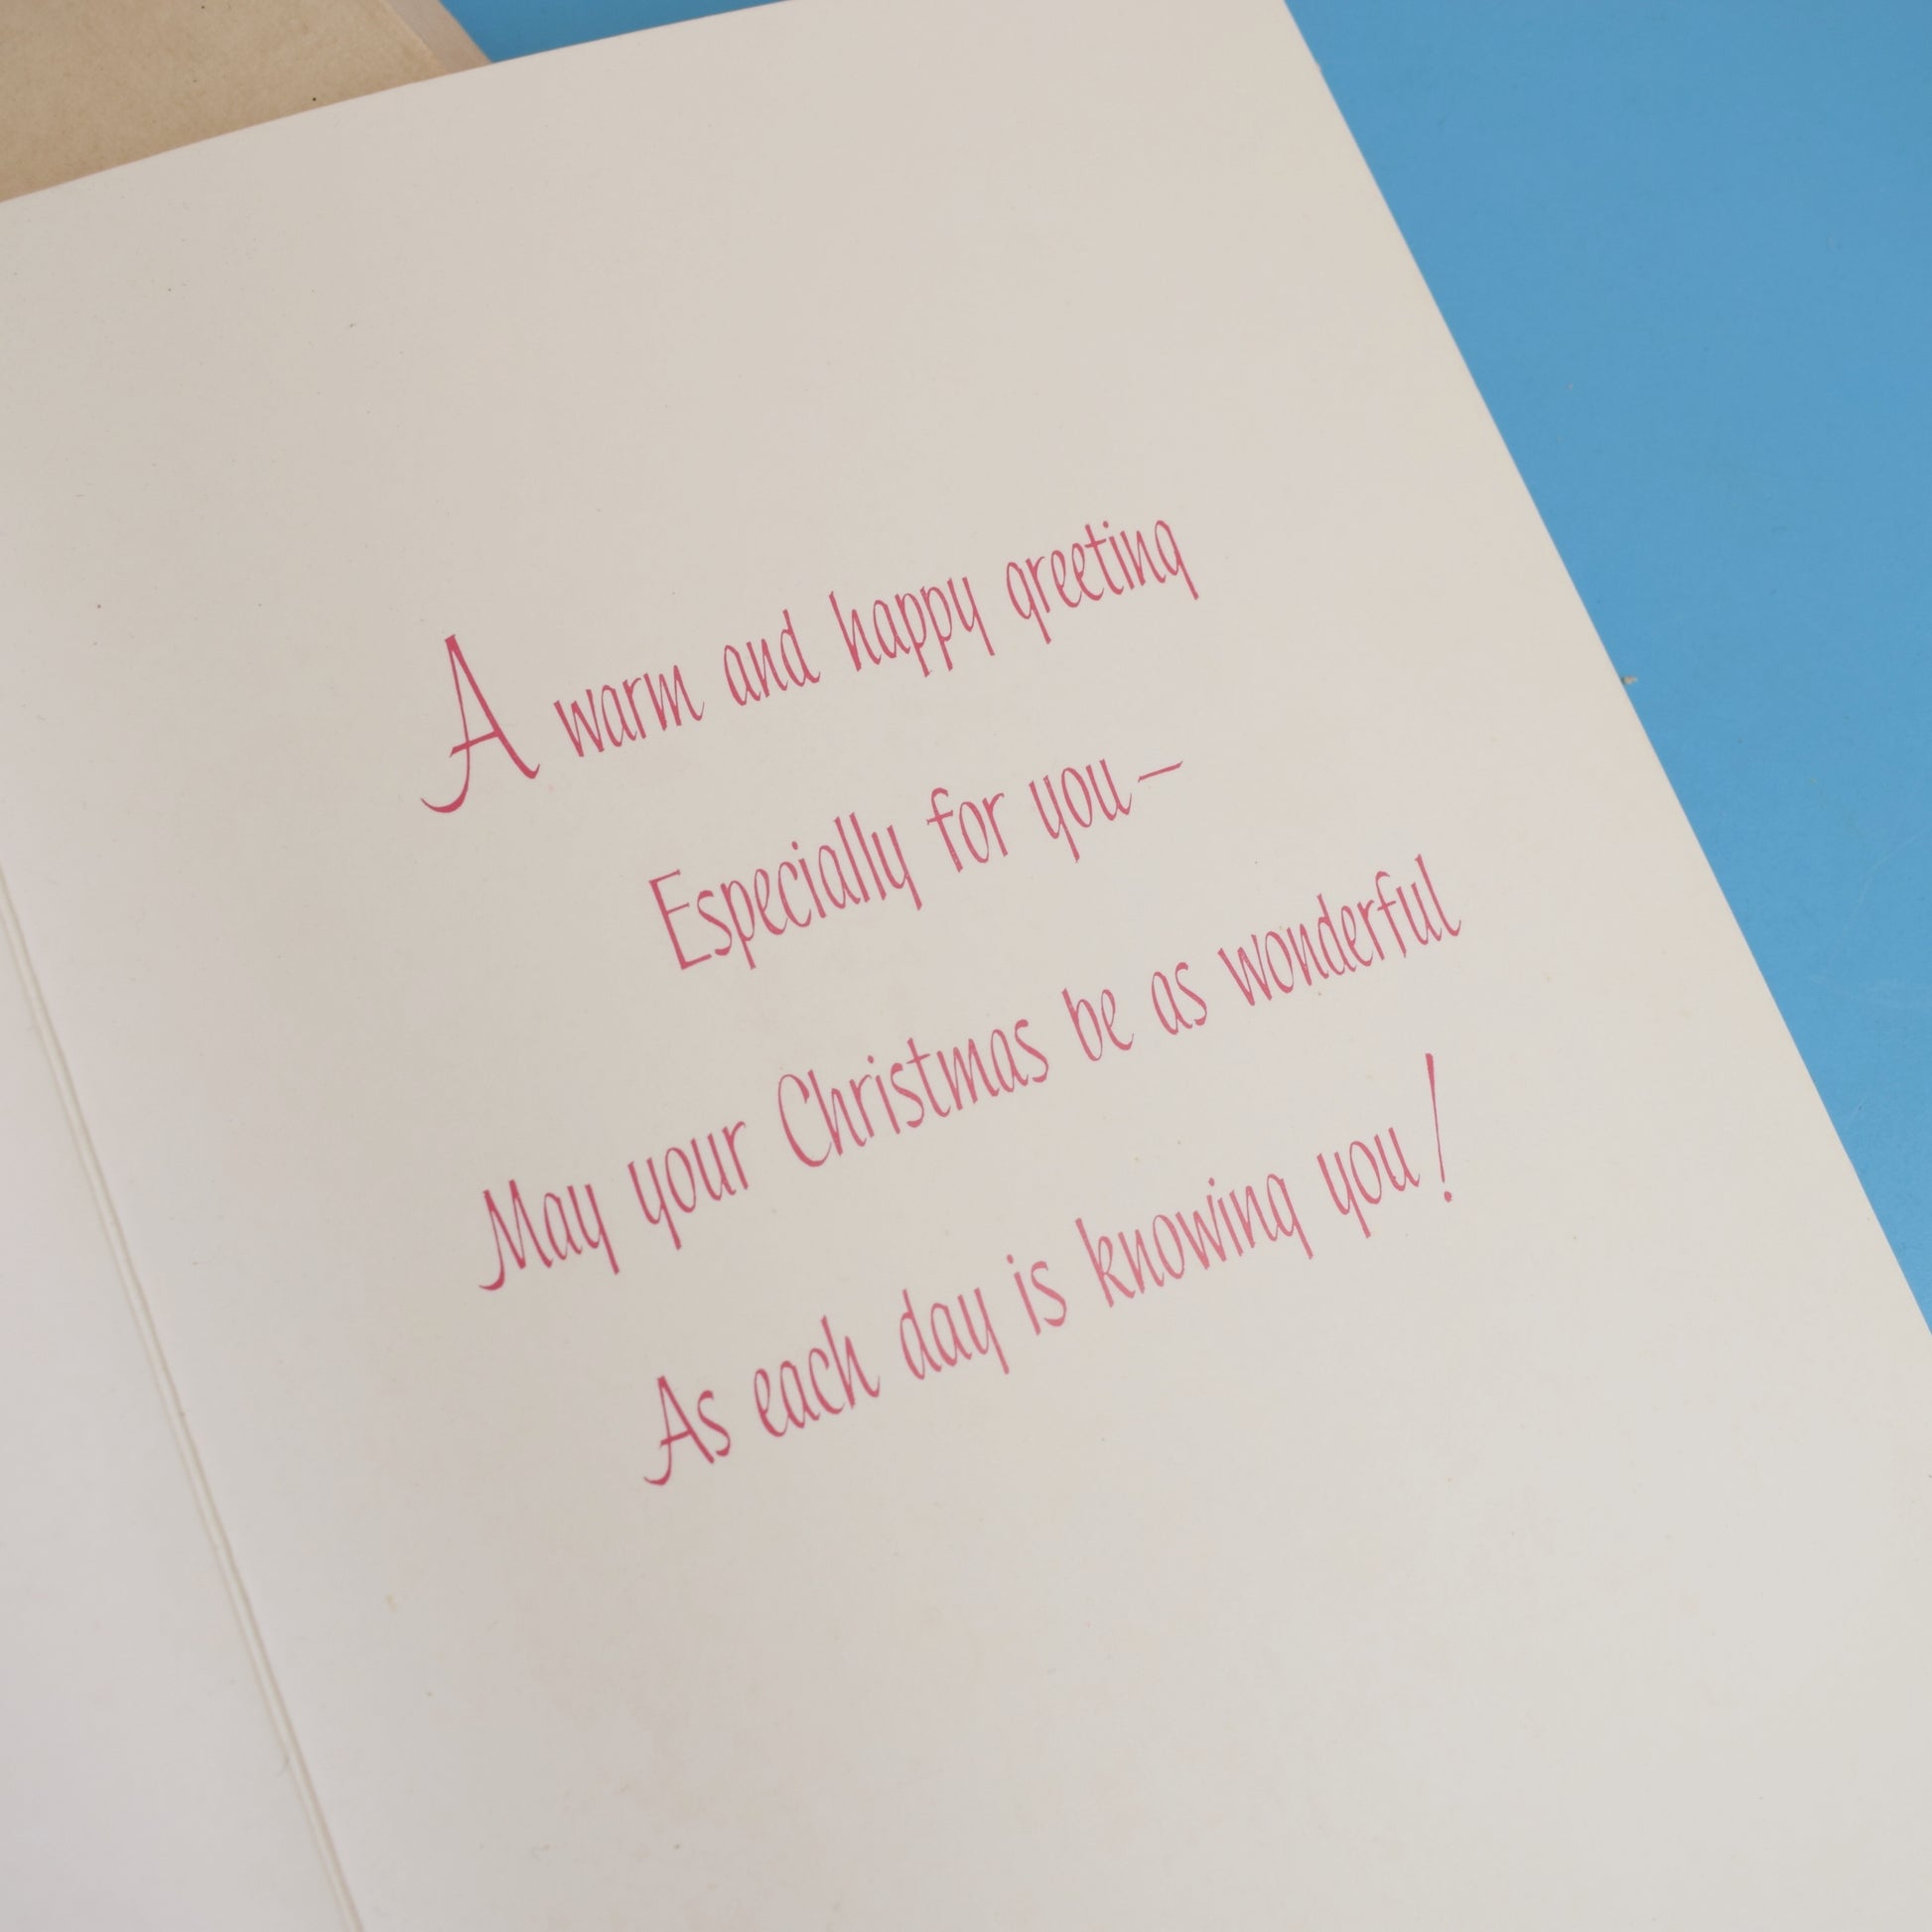 A warm and happy greeting
Especially for you—
May your Christmas be as wonderful
As each day is knowing you!